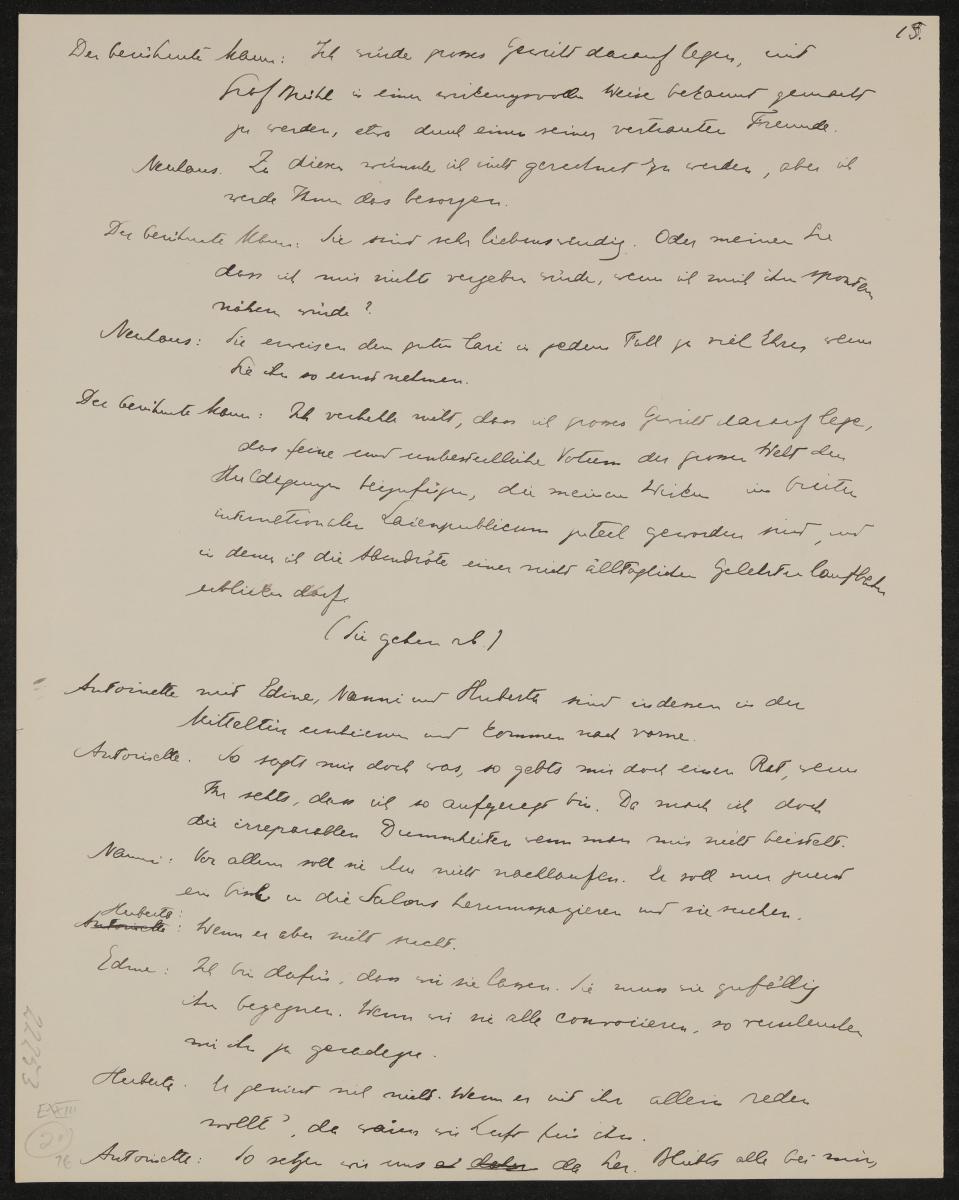 15.
Der berühmte Mann: Ich würde grosses Gewicht darauf legen, mit
Graf Bühl in einer wirkungsvollen Weise bekannt gemacht
zu werden, etwa durch einen seiner vertrauten Freunde.
Neuhaus. Zu diesen wünschte ich nicht gerechnet zu werden, aber ich
werde Ihnen das besorgen.
Der berühmte Mann: Sie sind sehr liebenswürdig. Oder meinen Sie
dass ich mir nichts vergeben würde, wenn ich mich ihm spontan
nähern würde?
Neuhaus: Sie erweisen dem guten Kari in jedem Fall zu viel Ehre, wenn
Sie ihn so ernst nehmen.
Der berühmte Mann: Ich verhehle nicht, dass ich grosses Gewicht darauf lege,
das feine und unbestechliche Votum der grossen Welt den
Huldigungen beizufügen, die meinem Wirken im breiten
internationalen Laienpublicum zuteil geworden sind, und
in denen ich die Abendröte einer nicht alltäglichen Gelehrtenlaufbahn
erblicken darf.
(Sie gehen ab.)
Antoinette mit Edine, Nanni und Huberta sind indessen in der
Mitteltür erschienen und kommen nach vorne.
Antoinette. So sagts mir doch was, so gebts mir doch einen Rat, wenn
Ihr sehts, dass ich so aufgeregt bin. Da mach ich doch
die irreparablen Dummheiten wenn man mir nicht beisteht.
Nanni: Vor allem soll sie ihm nicht nachlaufen. Er soll nur zuerst
ein bissl in die Salons herumspazieren und sie suchen.
Huberta:
Antoinette: Wenn er aber nicht sucht.
Edine: Ich bin dafür, dass wir sie lassen. Sie muss wie zufällig
ihm begegnen. Wenn wir sie alle convoiieren, so verscheuchen
wir ihn ja geradezu.
Huberta. Er geniert sich nicht. Wenn er mit ihr allein reden
wollt', da wären wir Luft für ihn.
Antoinette: So setzen wir uns da her. Bleibts alle bei mir,
22253
EXIII
16